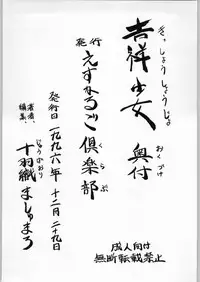 きっしょうしょうじょ
吉祥少女
おくづけ
奥付
発行
えすかるご倶楽部
くらぶ
発行日 一九九六年 十二月二十九日
著者、編集、
とばおり
十羽織ましゅまろ
成人向け
無断転載禁止